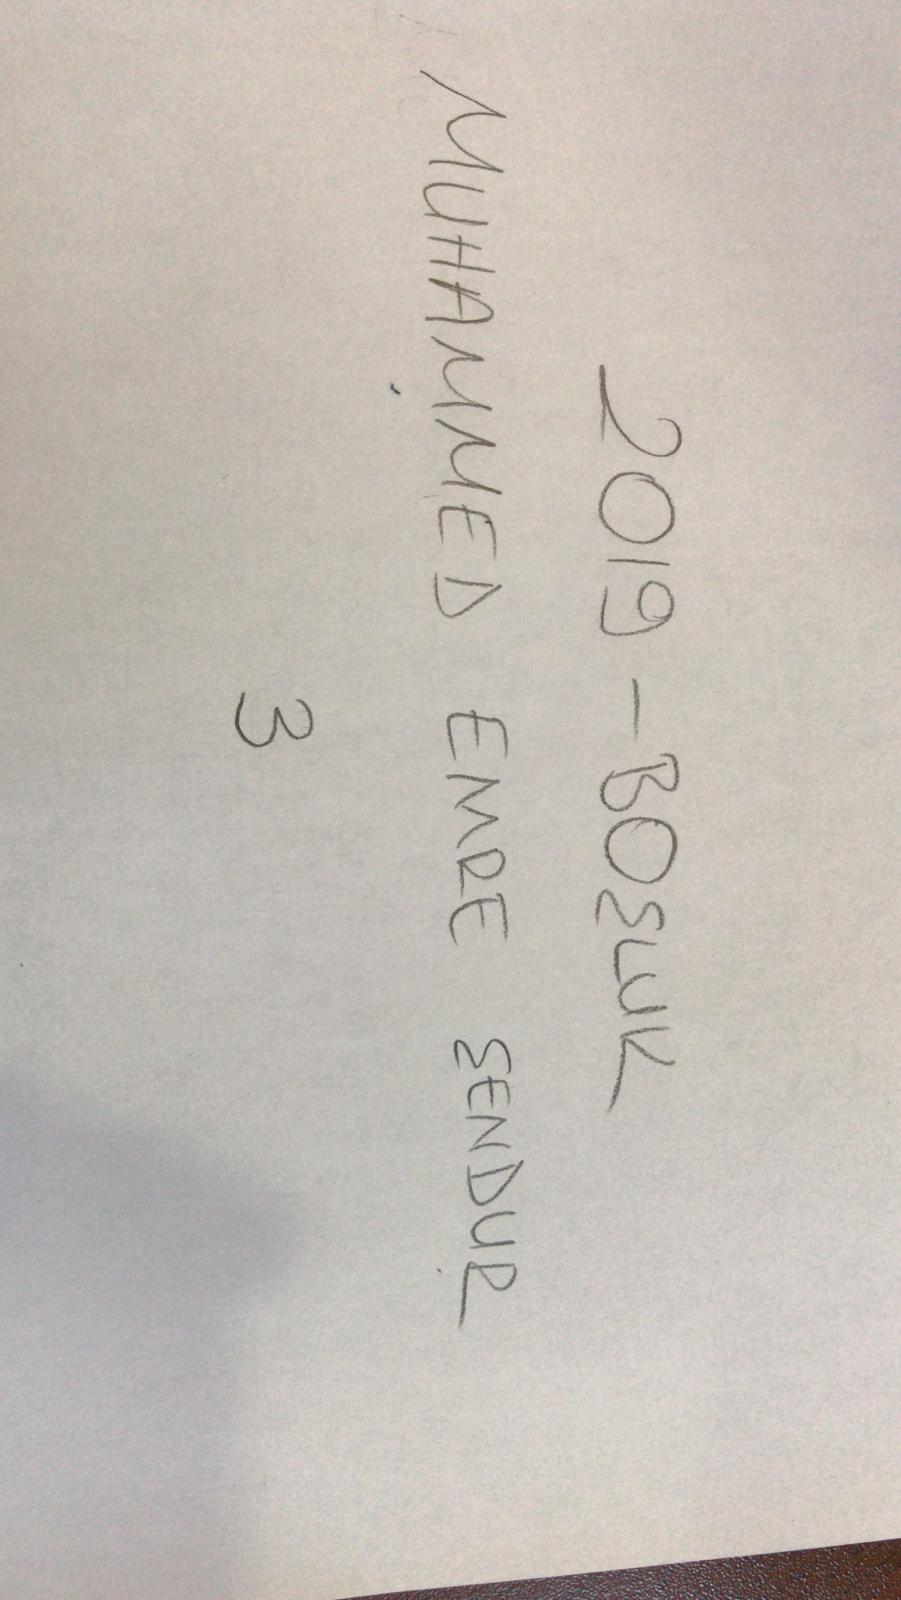 2019 - BOŞLUK
MUHAMMED EMRE ŞENDUR
3